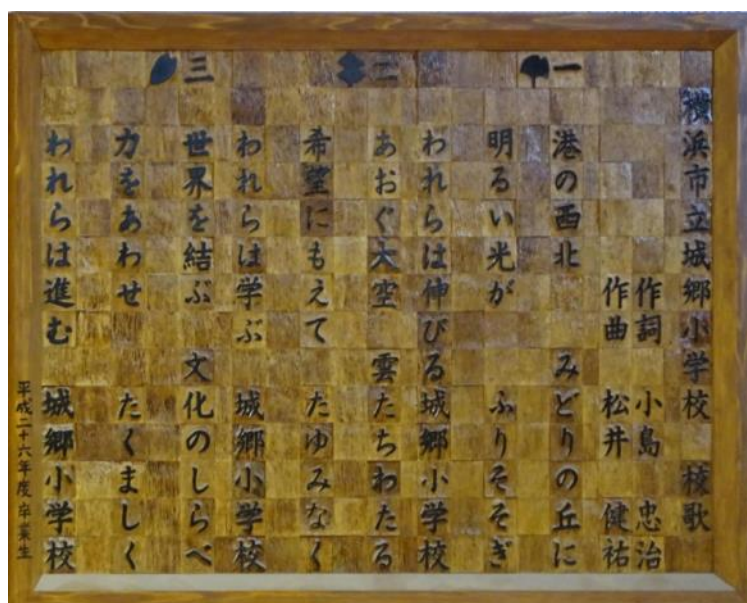 横浜市立城郷小学校 校歌
作詞 小島 忠治
作曲 松井 健祐
一 港の西北 みどりの丘に
明るい光が ふりそそぎ
われらは伸びる 城郷小学校
二 あおぐ大空 雲たちわたる
希望にもえて たゆみなく
われらは学ぶ 城郷小学校
三 世界を結ぶ 文化のしらべ
力をあわせ たくましく
われらは進む 城郷小学校
平成二十六年度 卒業生